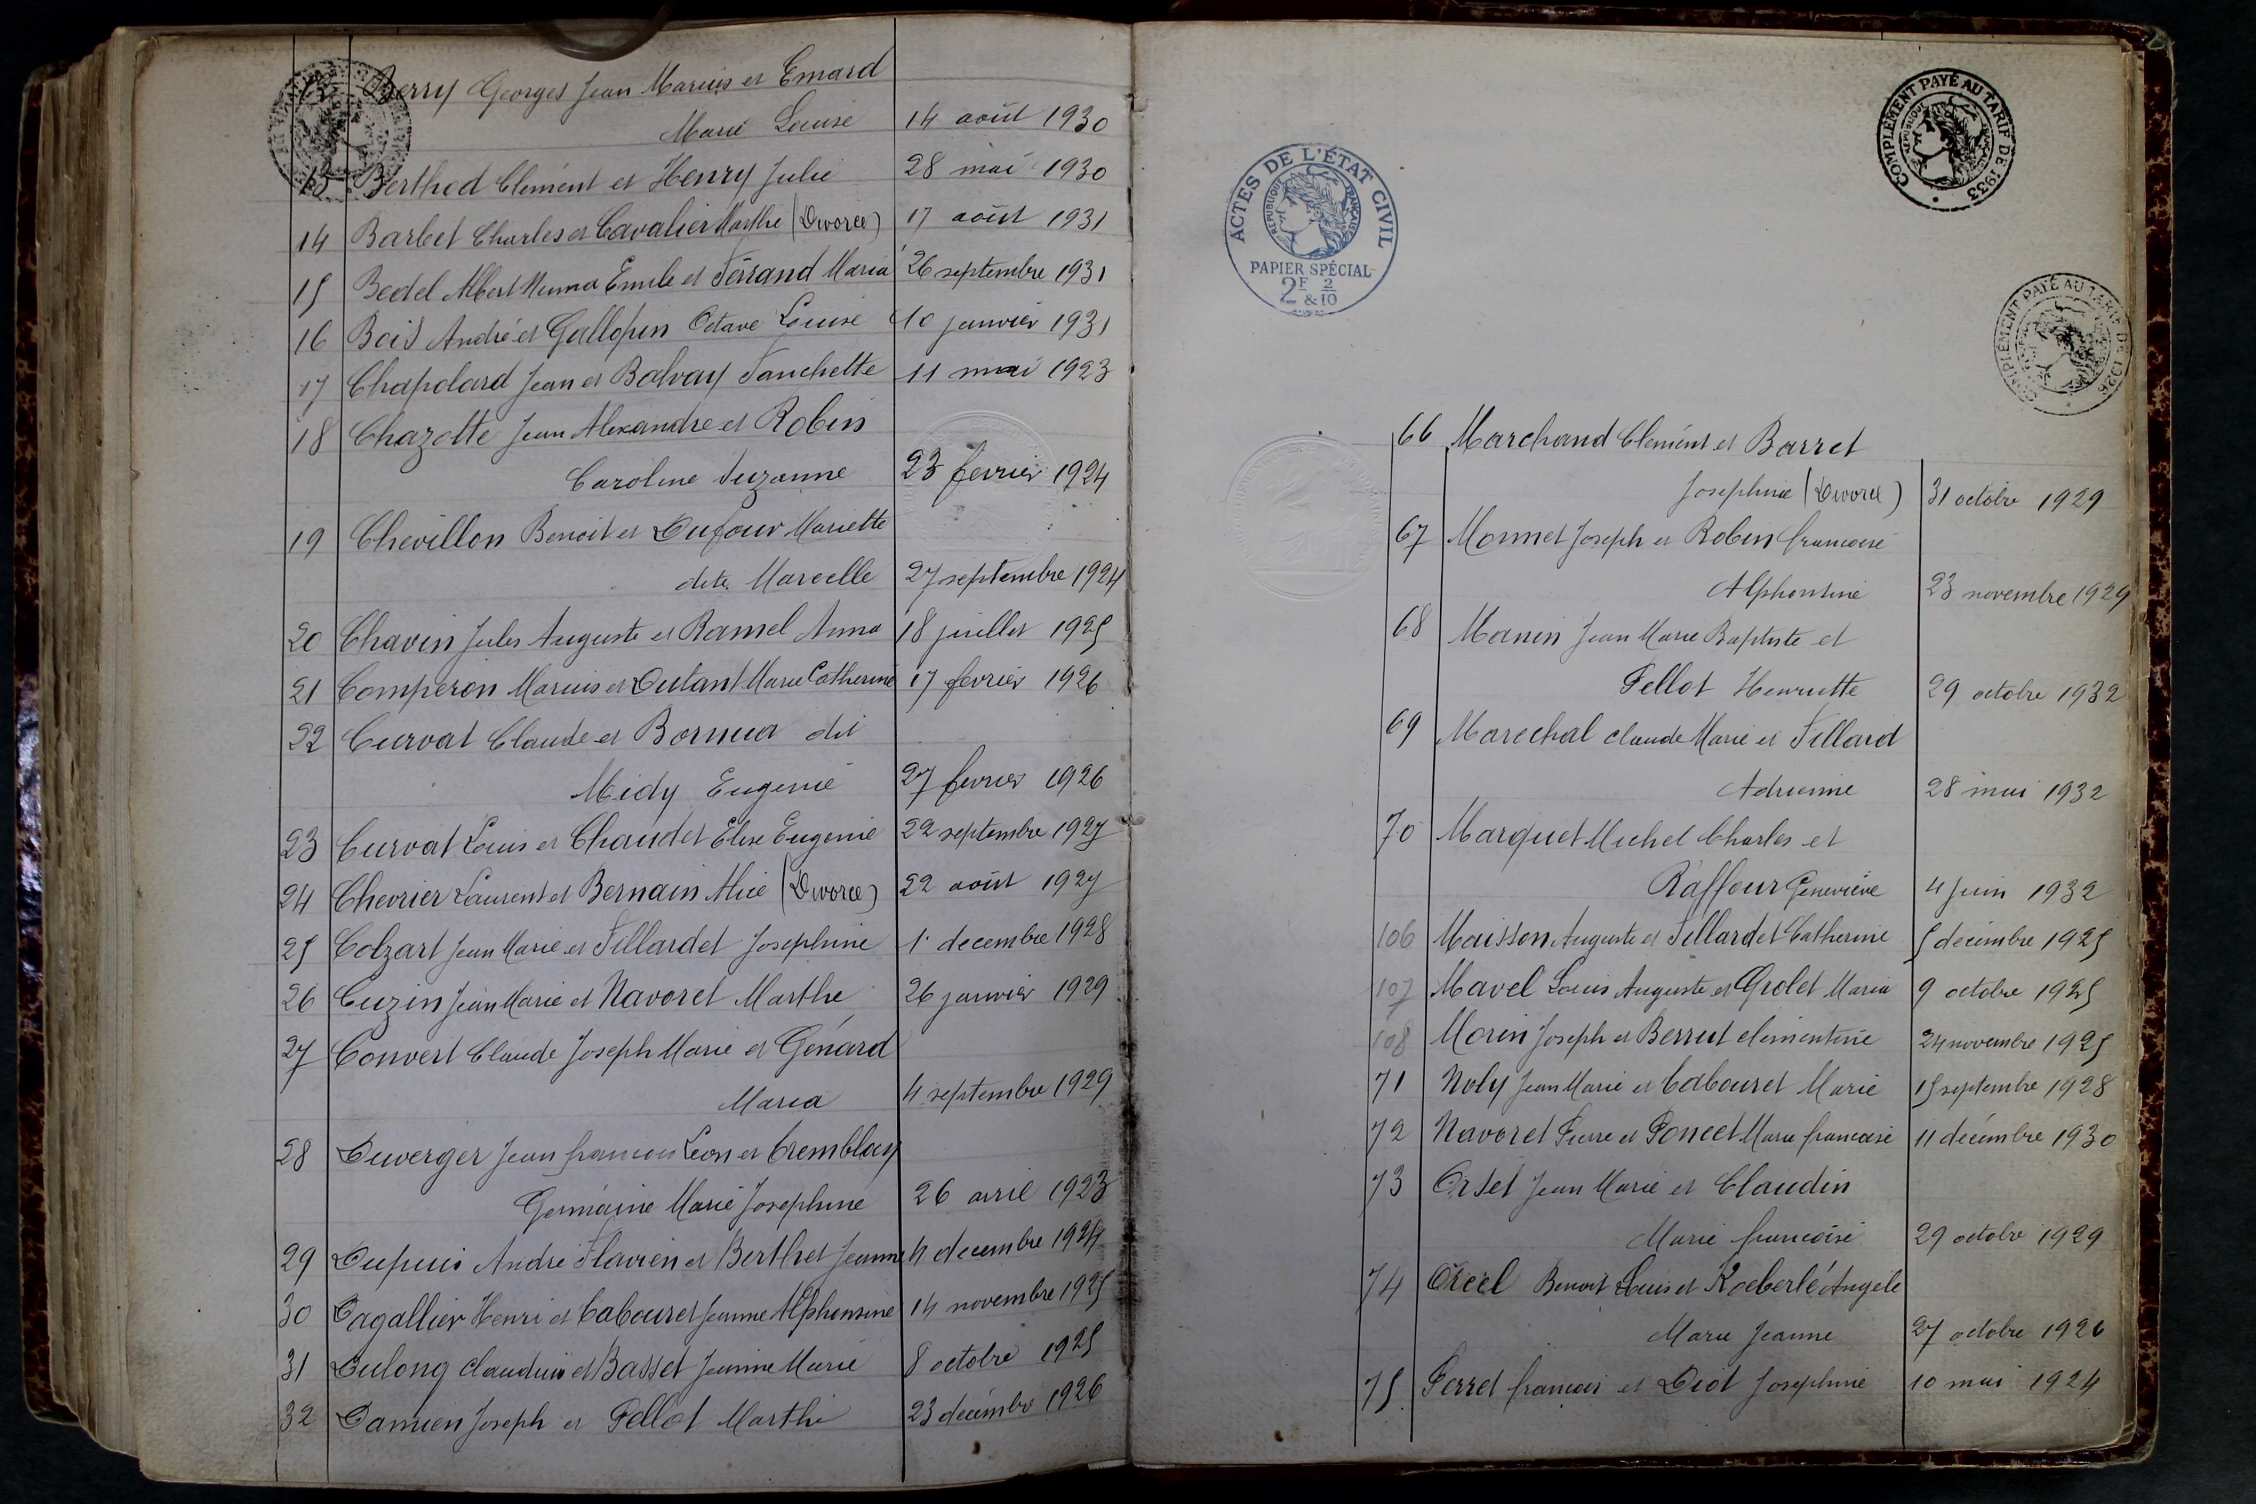 12 Berry Georges Jean Marius et Emard
Marie Louise 14 août 1930
13 Berthod Clément et Henry Julie 28 mai 1930
14 Barbet Charles et Cavalier Marthe (Divorce) 17 août 1931
15 Bedel Albert Numa Emile et Ferrand Maria 26 septembre 1931
16 Bois André et Gallopin Octave Louise 10 janvier 1931
17 Chapolard Jean et Balvay Fanchette 11 mai 1923
18 Chazotte Jean Alexandre et Robin
Caroline Suzanne 23 fevrier 1924
19 Chevillon Benoit et Dufour Mariette
dite Marcelle 27 septembre 1924
20 Chavin Jules Auguste et Ramel Anna 18 juillet 1925
21 Comperon Marius et Dutant Marie Catherine 17 fevrier 1926
22 Curvat Claude et Bornua dit
Midy Eugenie 27 fevrier 1926
23 Curvat Louis et Chaudet Elise Eugenie 22 septembre 1927
24 Chevrier Laurent et Bernain Alice (Divorce) 22 août 1927
25 Colzart Jean Marie et Fillardet Josephine 1. decembre 1928
26 Cuzin Jean Marie et Navoret Marthe 26 janvier 1929
27 Convert Claude Joseph Marie et Génard
Maria 4 septembre 1929
28 Duverger Jean francois Leon et Tremblay
Germaine Marie Josephine 26 avril 1923
29 Dupuis André Flavien et Berthet Jeanne 4 decembre 1924
30 Dagallier Henri et Cabouret Jeanne Alphonsine 14 novembre 1925
31 Dulong Claudius et Basset Jeanne Marie 8 octobre 1925
32 Damien Joseph et Pellot Marthe 23 decembre 1926
COMPLÉMENT PAYÉ AU TARIF DE 1933
RÉPUBLIQUE FRANÇAISE
ACTES DE L'ÉTAT CIVIL
RÉPUBLIQUE FRANÇAISE
PAPIER SPÉCIAL
2F & 2/10
COMPLÉMENT PAYÉ AU TARIF DE 1926
66 Marchand Clément et Barret
Josephine (Divorce) 31 octobre 1929
67 Monnet Joseph et Robin francoise
Alphonsine 23 novembre 1929
68 Manin Jean Marie Baptiste et
Pellot Henriette 29 octobre 1932
69 Marechal Claude Marie et Fillard
Adrienne 28 mai 1932
70 Marquet Michel Charles et
Raffour Geneviève 4 Juin 1932
106 Maisson Auguste et Fillardet Catherine 5 decembre 1925
107 Mavel Louis Auguste et Grolet Maria 9 octobre 1925
108 Morin Joseph et Berrut clementine 24 novembre 1925
71 Noly Jean Marie et Cabouret Marie 15 septembre 1928
72 Navoret Pierre et Poncet Marie francoise 11 décembre 1930
73 Orset Jean Marie et Claudin
Marie francoise 29 octobre 1929
74 Orcel Benoit Louis et Koeberlé Angele
Marie Jeanne 27 octobre 1926
75 Perret francois et Diot Josephine 10 mai 1924